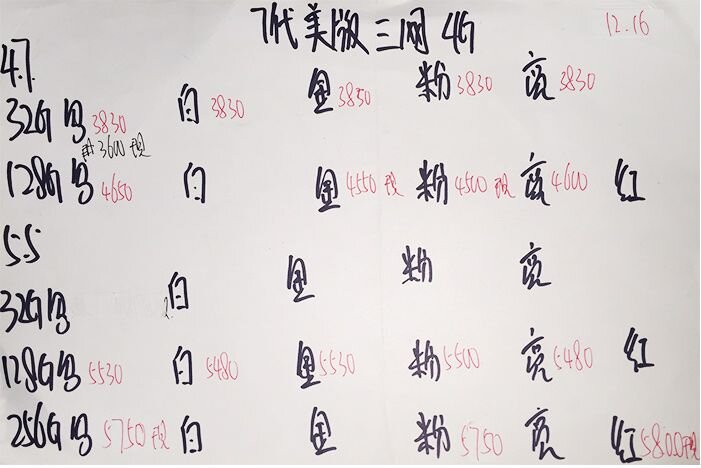 7代美版三网4G 12.16
4.7
32G 黑 3830 白 3830 金 3850 粉 3830 亮 3830
3600 现
128G 黑 4650 白 金 4550 现 粉 4500 现 亮 4600 红
5.5
32G 黑 白 金 粉 亮
128G 黑 5530 白 5480 金 5530 粉 5500 亮 5480 红
256G 黑 5750 现 白 金 粉 5750 亮 红 5800 现